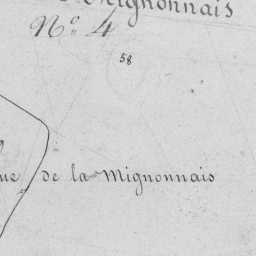 Mignonnais
N.º 4
58
ue de la Mignonnais